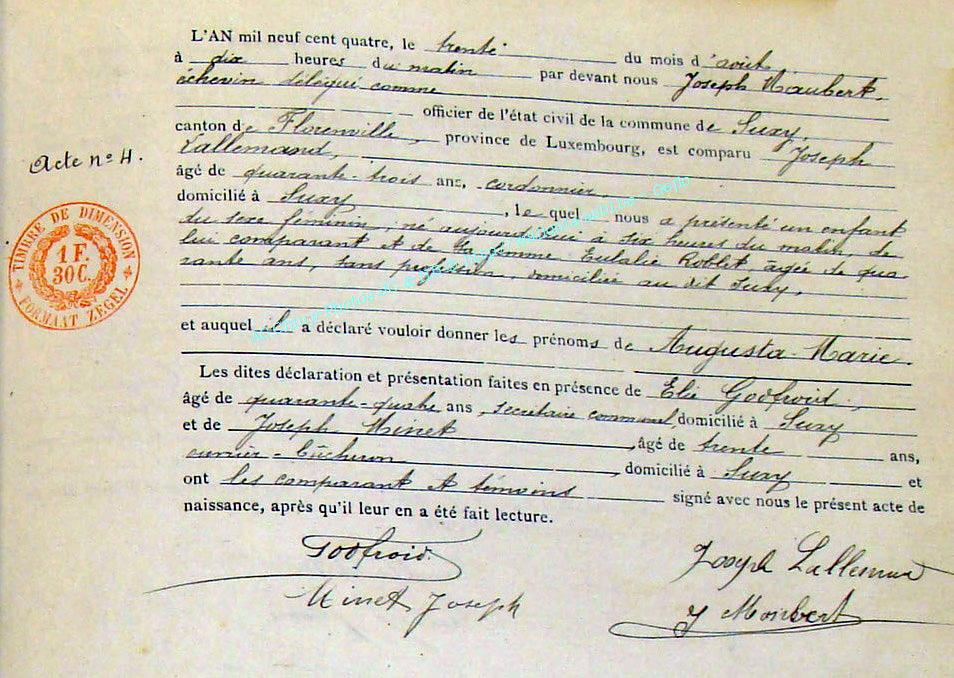 L'AN mil neuf cent quatre, le trente du mois d'août,
à dix heures du matin par devant nous Joseph Maubert,
échevin délégué comme
officier de l'état civil de la commune de Suxy,
canton de Florenville, province de Luxembourg, est comparu Joseph
Lallemand,
Acte n° 4.
âgé de quarante-trois ans, cordonnier,
domicilié à Suxy, le quel nous a présenté un enfant
du sexe féminin, né aujourd'hui à six heures du matin, de
lui comparant et de sa femme Eulalie Roblet âgée de qua
rante ans, sans profession domiciliée au dit Suxy,
TIMBRE DE DIMENSION
1 F.
30 C.
FORMAAT ZEGEL
et auquel il a déclaré vouloir donner les prénoms de Augusta-Marie.
Les dites déclaration et présentation faites en présence de Elie Godfroid,
âgé de quarante-quatre ans, secrétaire communal, domicilié à Suxy
et de Joseph Minet, âgé de trente ans,
ouvrier-bûcheron, domicilié à Suxy et
ont les comparant et témoins signé avec nous le présent acte de
naissance, après qu'il leur en a été fait lecture.
Godfroid.
Joseph Lallemand
Minet Joseph
J Maubert